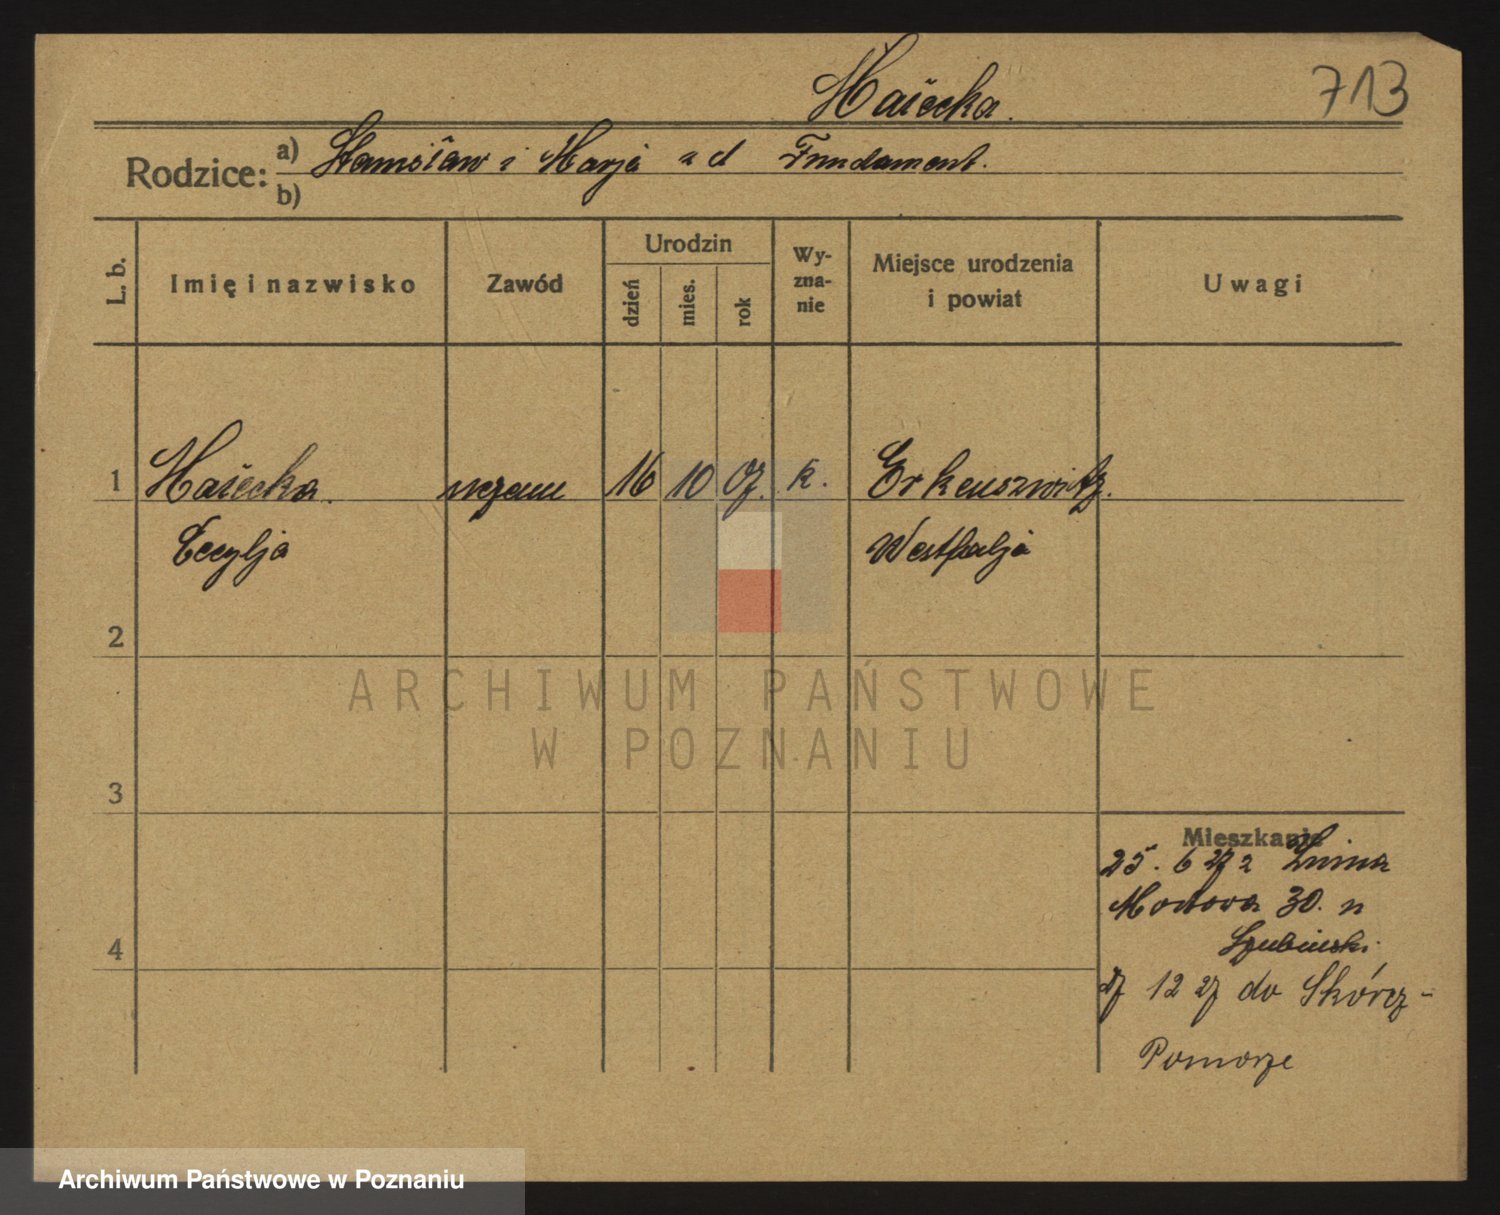 Haiecka.
713
Rodzice: a) Stanisław i Marja z d Fundament.
b)
L. b.
Imię i nazwisko
Zawód
Urodzin
dzień
mies.
rok
Wy-
zna-
nie
Miejsce urodzenia
i powiat
Uwagi
1 Haiecka. uczenn 16 10 07. k.
Cecylja
Westfalja
2
ARCHIWUM PAŃSTWOWE
W POZNANIU
3
Mieszkanie
25. 6 27 z Żnina
30. u
4
Szubiński.
12 27 do Skórcz-
Pomorze
Archiwum Państwowe w Poznaniu